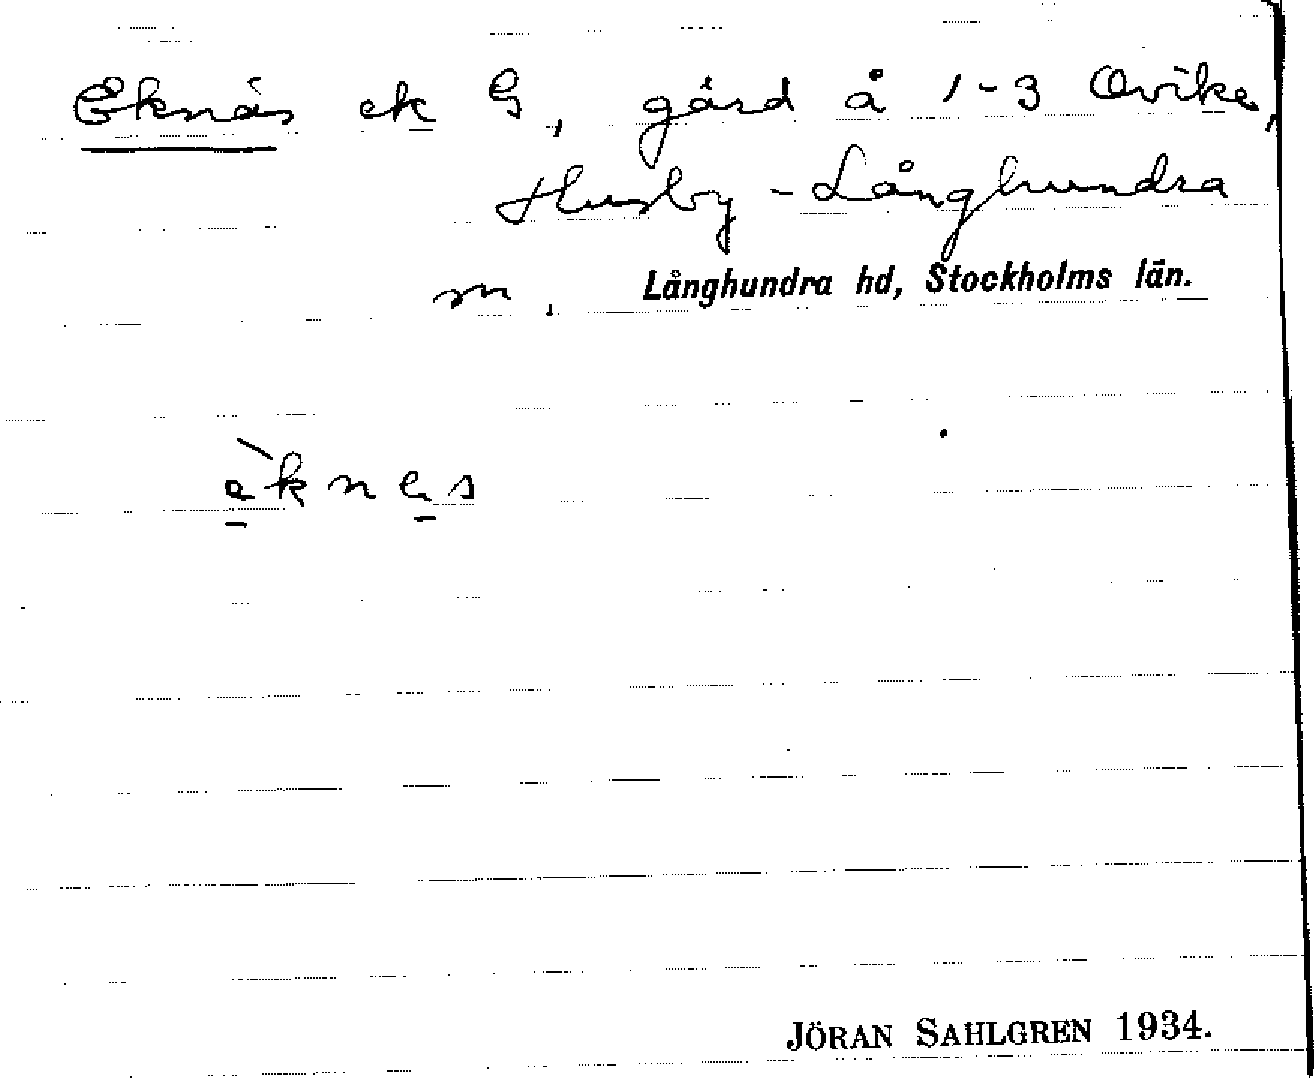 Eknäs ek G, gård å 1-3 Ovike,
Husby-Långhundra
m. Långhundra hd, Stockholms län.
èknes
JÖRAN SAHLGREN 1934.